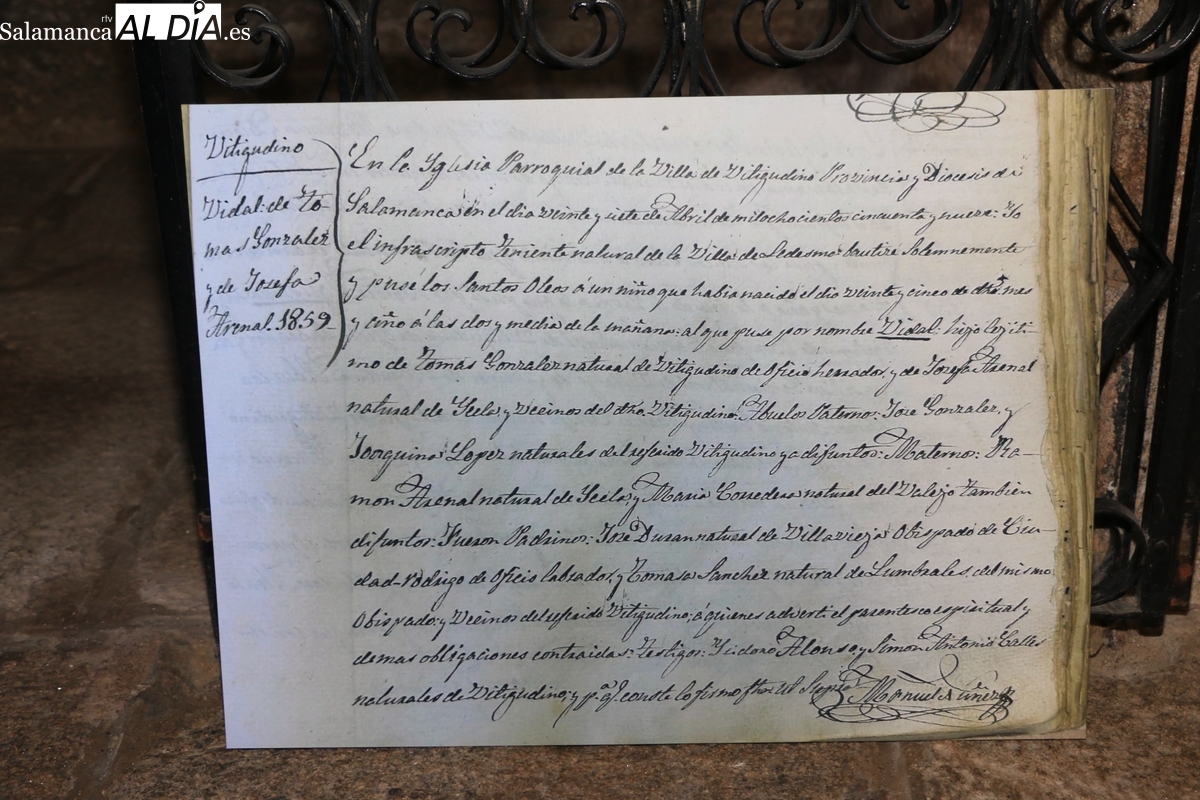 rtv
SalamancaALDÍA.es
Vitigudino
Vidal: de To-
mas Gonzalez
y de Josefa
Arenal. 1859.
En la Yglesia Parroquial de la Villa de Vitigudino Provincia y Diocesis de
Salamanca en el dia veinte y siete de Abril de mil ochocientos cincuenta y nueve: Yo
el infrascripto Teniente natural de la Villa de Ledesma bautizé Solemnemente
y pusé los Santos Oleos á un niño que habia nacido el dia veinte y cinco de dho. mes
y año á las dos y media de la mañana: al que puse por nombre Vidal: hijo legiti-
mo de Tomás Gonzalez natural de Vitigudino de Oficio herrador, y de Josefa Arenal
natural de Yecla, y Vecinos del dho. Vitigudino. Abuelos Paternos: José Gonzalez, y
Joaquina Lopez naturales del referido Vitigudino ya difuntos: Maternos: Ra-
mon Arenal natural de Yecla, y Maria Corredera natural del Valejo tambien
difuntos: Fueron Padrinos: José Duran natural de Villavieja Obispado de Ciu-
dad-rodrigo de Oficio labrador, y Tomasa Sanchez natural de Lumbrales, del mismo
Obispado: y Vecinos del referido Vitigudino; á quienes adverti el parentesco espiritual y
demas obligaciones contraidas: Testigos: Ysidoro Alonso y Simon Antonio Calles
naturales de Vitigudino; y pa. qe. conste lo firmo fha. ut Supra
Manuel Nuñez